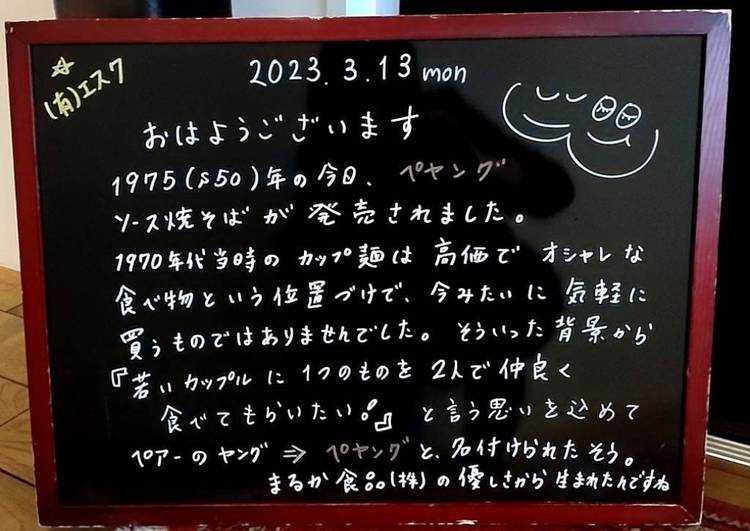 ☆
(有)エスク
2023.3.13 mon
おはようございます
1975(S50)年の今日、ペヤング
ソース焼そばが発売されました。
1970年代当時のカップ麺は高価でオシャレな
食べ物という位置づけで、今みたいに気軽に
買うものではありませんでした。そういった背景から
『若いカップルに1つのものを2人で仲良く
食べてもらいたい。』と言う思いを込めて
ペアーのヤング⇒ペヤングと、名付けられたそう。
まるか食品(株)の優しさから生まれたんですね